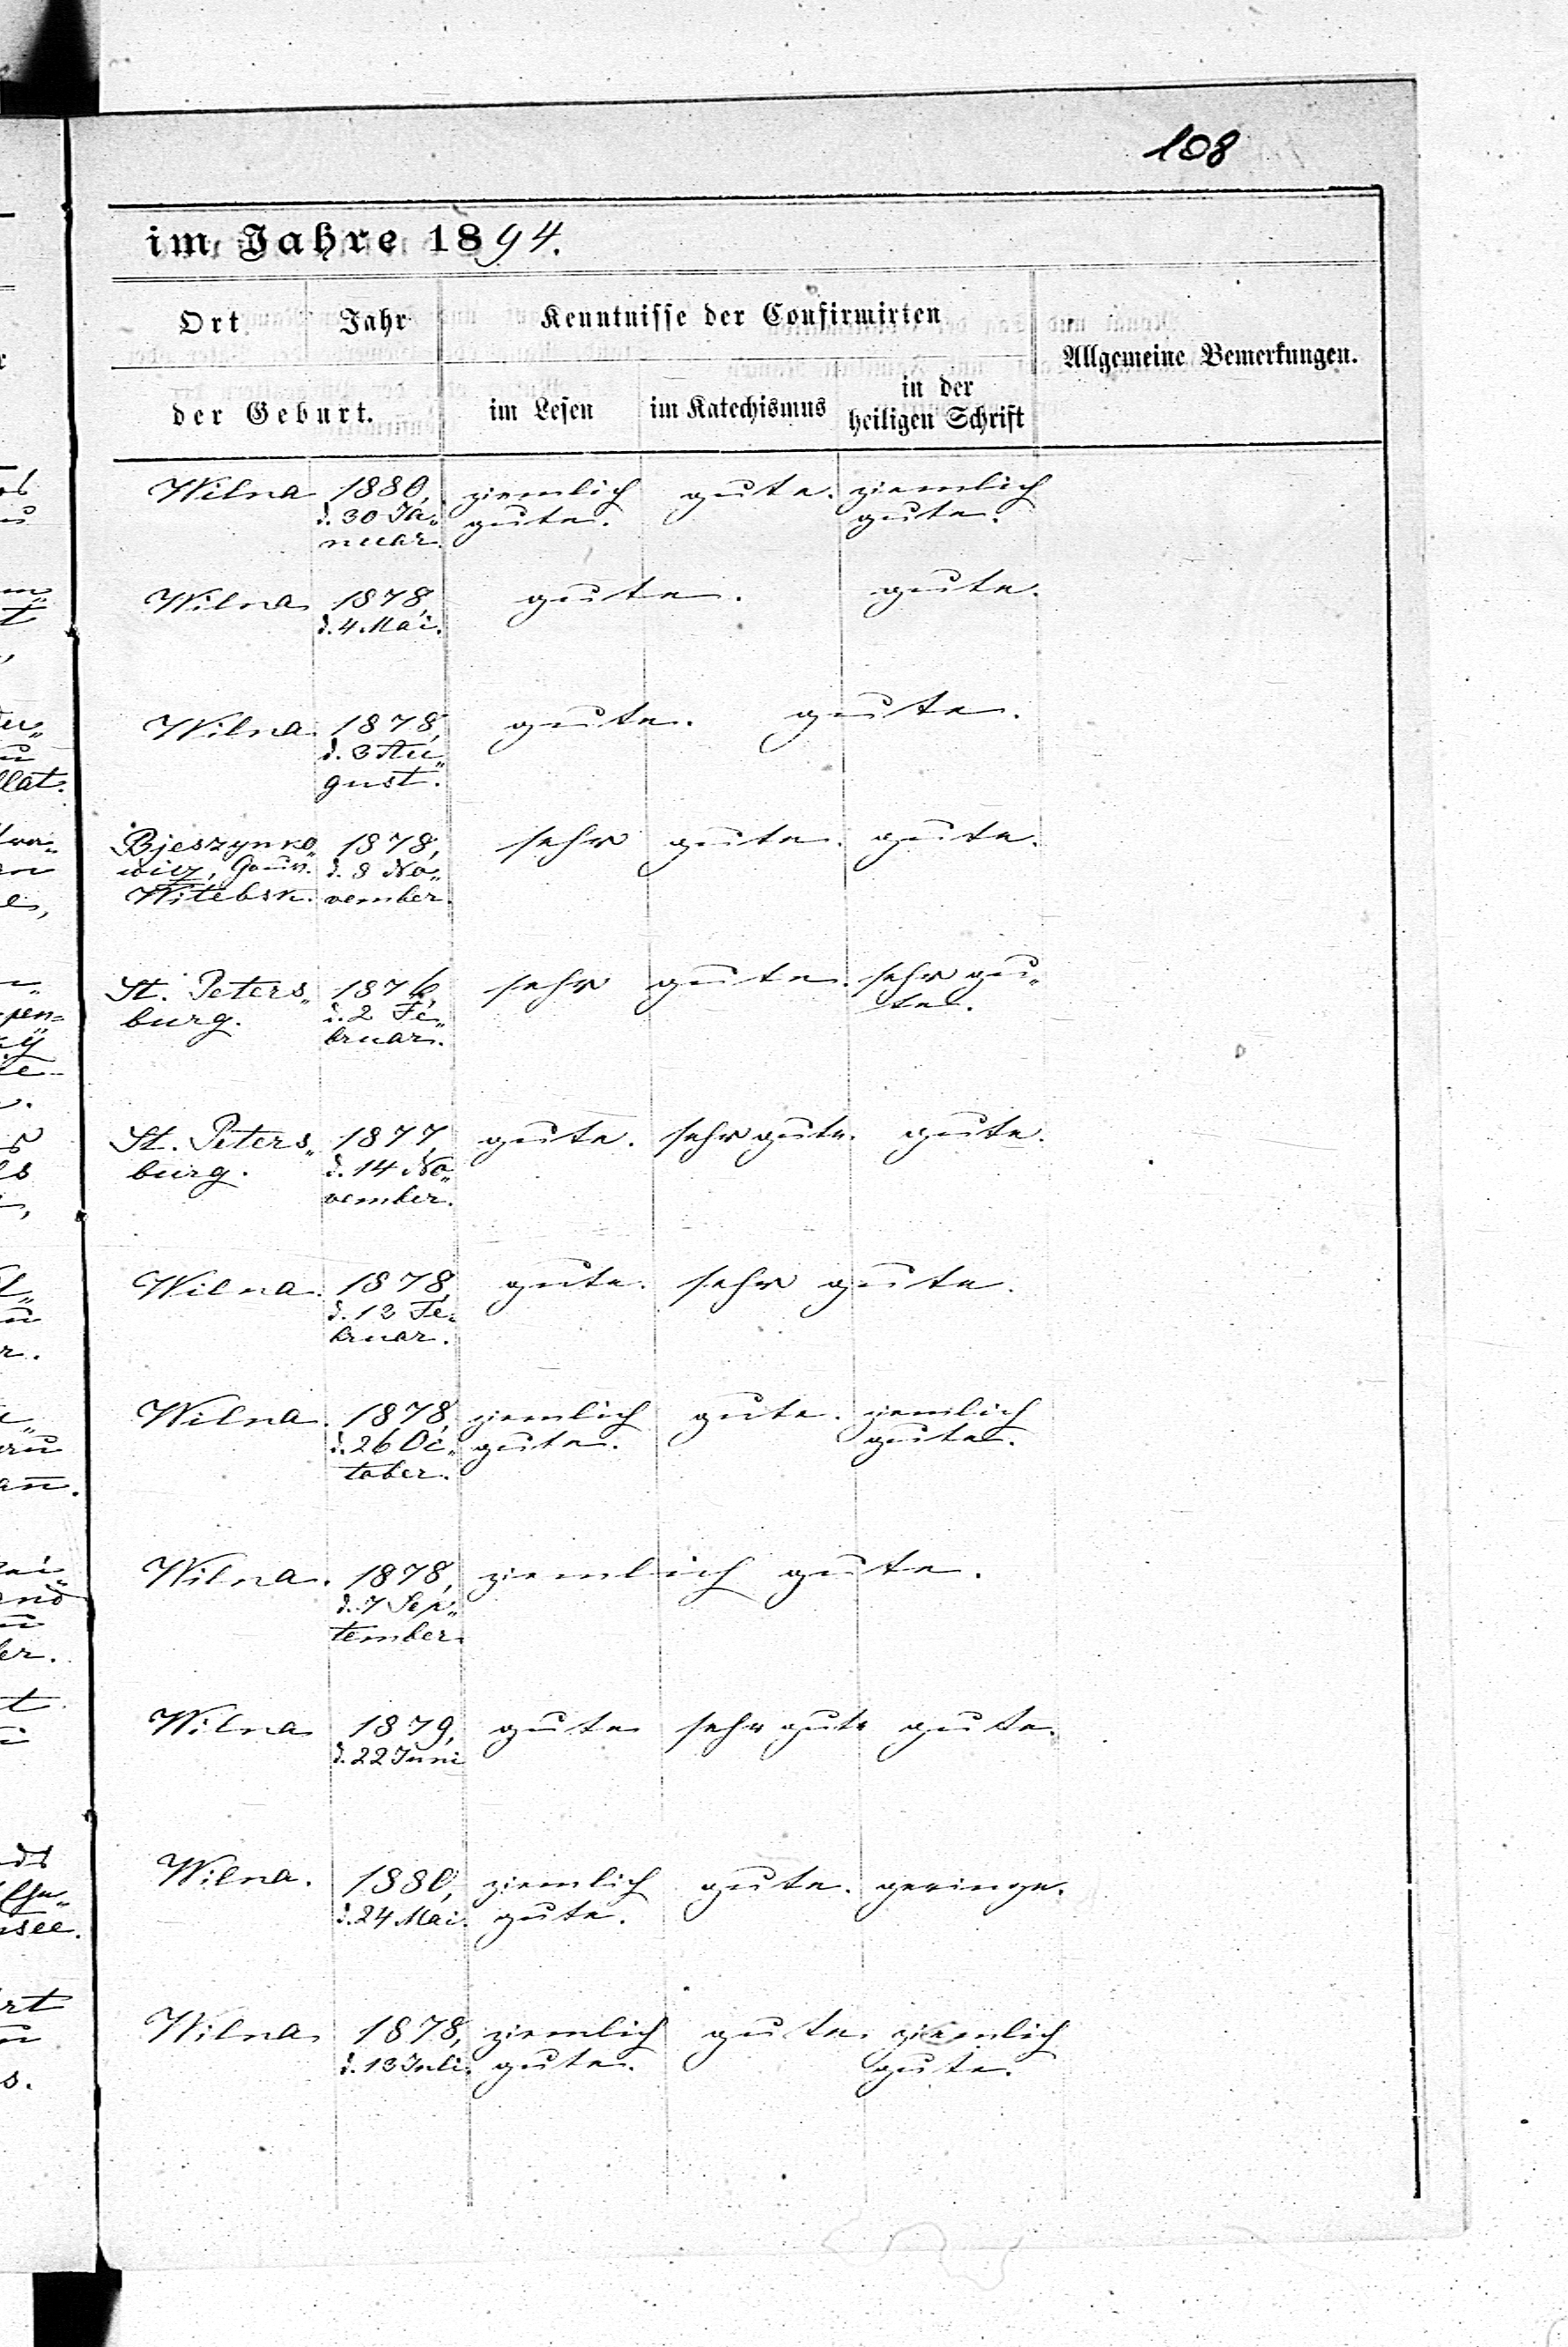 108
im Jahre 1894.
Ort Jahr Kenntnisse der Confirmirten
Allgemeine Bemerkungen.
der Geburt. im Lesen im Katechismus in der heiligen Schrift
Wilna 1880, ziemlich gute. ziemlich
d. 30 Ja„ gute. gute.
nuar.
Wilna 1878, gute. gute.
d. 4 Mai.
Wilna. 1878, gute. gute.
d. 3 Au„
gust.
Bjeszynko„ 1878, sehr gute. gute.
wicz, Gouv. d. 8 No„
Witebsk. vember.
St. Peters„ 1876, sehr gute. sehr gu„
burg. d. 2 Fe„ te.
bruar.
St. Peters„ 1877, gute. sehr gute. gute.
burg. d. 14 No„
vember.
Wilna. 1878, gute. sehr gute.
d. 12 Fe„
bruar.
Wilna. 1878, ziemlich gute. ziemlich
d. 26 Oc„ gute. gute.
tober.
Wilna. 1878, ziemlich gute.
d. 7 Sep„
tember.
Wilna 1879, gute sehr gute gute.
d. 22 Juni
Wilna. 1880, ziemlich gute. geringe.
d. 24 Mai. gute.
Wilna 1878, ziemlich gute. ziemlich
d. 13 Juli. gute. gute.